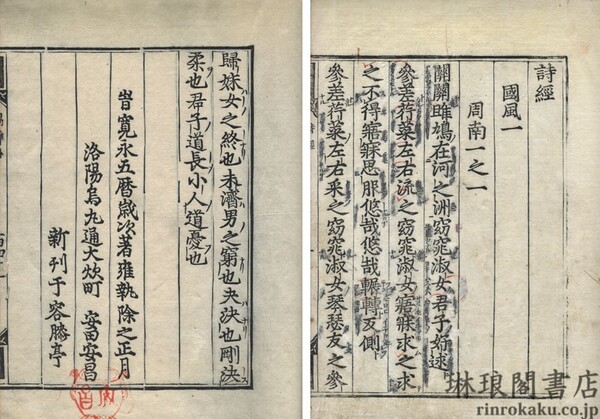 詩經
國風一
周南一之一
關關雎鳩在河之洲窈窕淑女君子好逑
參差荇菜左右流之窈窕淑女寤寐求之求
之不得寤寐思服悠哉悠哉輾轉反側
參差荇菜左右采之窈窕淑女琴瑟友之參
歸妹女之終也未濟男之窮也夬決也剛決
柔也君子道長小人道憂也
旹寛永五暦歳次著雍執除之正月
洛陽烏丸通大炊町 安田安昌
新刊于容膝亭
琳琅閣書店
rinrokaku.co.jp